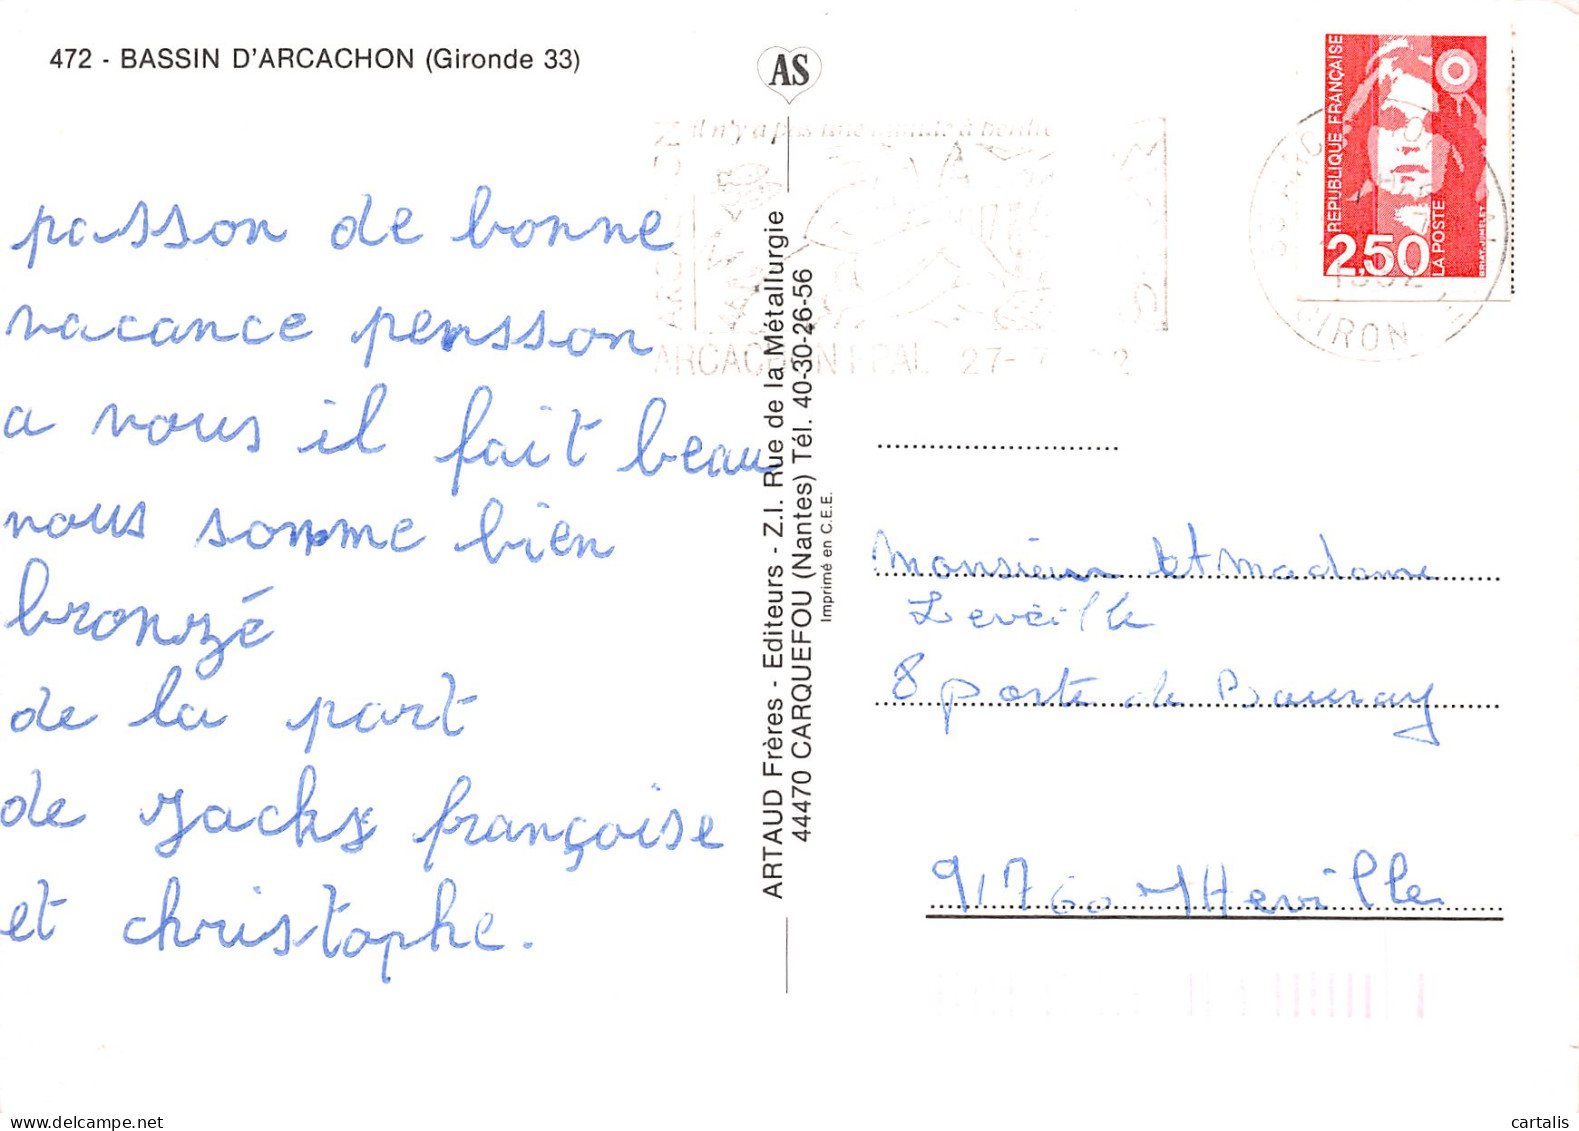 472 - BASSIN D'ARCACHON (Gironde 33)
AS
passon de bonne
vacance pensson
a vous il fait beau
nous somme bien
bronzé
de la part
de Jacky françoise
et christophe.
ARTAUD Frères - Editeurs - Z.I. Rue de la Métallurgie
44470 CARQUEFOU (Nantes) Tél. 40-30-26-56
Imprimé en C.E.E.
il n'y a pas une minute à perdre
ARCACHON PPAL 27-7
REPUBLIQUE FRANÇAISE
2,50
LA POSTE
BRIAT-JUMELET
1992
GIRON
Monsieur et Madame
Leveille
8 porte de
91760 Itteville
cartalis
www.delcampe.net